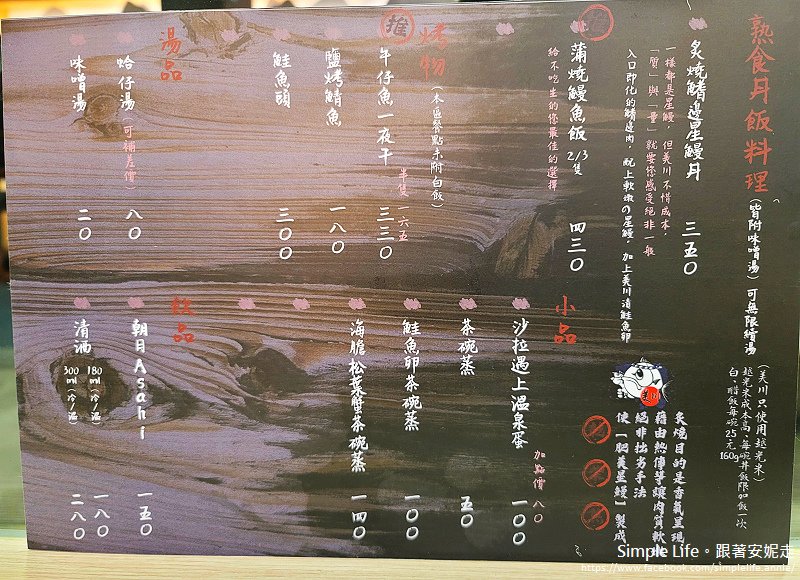 熟食丼飯料理
(皆附味噌湯)可無限續湯
(美川只使用越光米)
越光米成本高、每碗丼飯限加飯一次
白、醋飯每碗25元 160g
炙燒鰭邊星鰻丼 三五〇
一樣都是星鰻,但美川不惜成本,
「質」與「量」就要您感受絕非一般
入口即化的鰭邊肉,配上軟嫩の星鰻,加上美川漬鮭魚卵
推
蒲燒鰻魚飯 2/3隻 四三〇
給不吃生的您最佳的選擇
烤物
(本區餐點未附白飯)
推
午仔魚一夜干 三三〇
半隻 一六五
鹽烤鯖魚 一八〇
鮭魚頭 三〇〇
湯品
蛤仔湯(可補差價) 八〇
味噌湯 二〇
炙燒目的是香氣呈現
藉由熱傳導讓肉質軟嫩
絕非拙劣手法
使「肥美星鰻」製成
小品
沙拉遇上溫泉蛋 一〇〇
加點價 八〇
茶碗蒸 五〇
鮭魚卵茶碗蒸 一〇〇
海膽松葉蟹茶碗蒸 一四〇
飲品
朝日Asahi 一五〇
清酒 180ml(冷/溫) 一八〇
300ml(冷/溫) 二八〇
Simple Life。跟著安妮走
https://www.facebook.com/simplelife.annie/